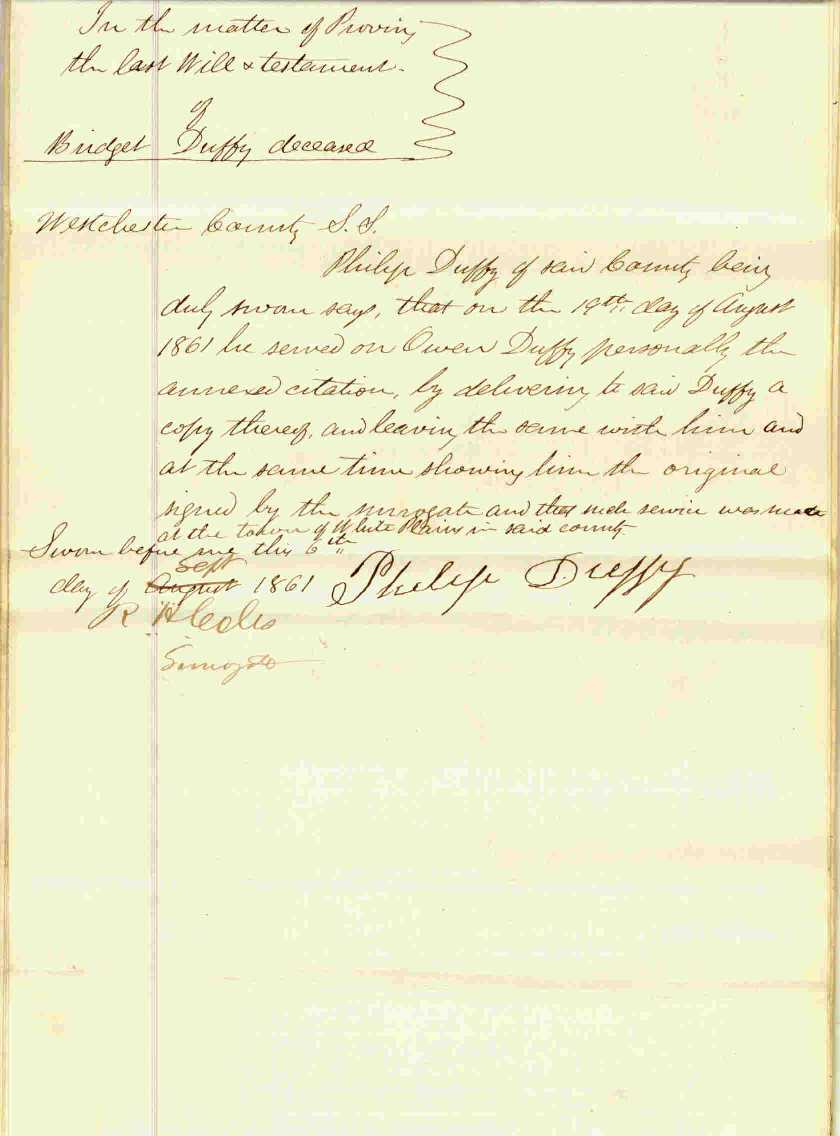 In the matter of Proving
the last Will & testament
of
Bridget Duffy deceased
Westchester County S.S.
Philip Duffy of said County being
duly sworn says, that on the 19th day of August
1861 he served on Owen Duffy personally the
annexed citation, by delivering to said Duffy a
copy thereof, and leaving the same with him and
at the same time showing him the original
signed by the surrogate and that such service was made
at the town of White Plains in said county
Sworn before me this 6th
Sept
day of August 1861 Philip Duffy
R H Coles
Surrogate